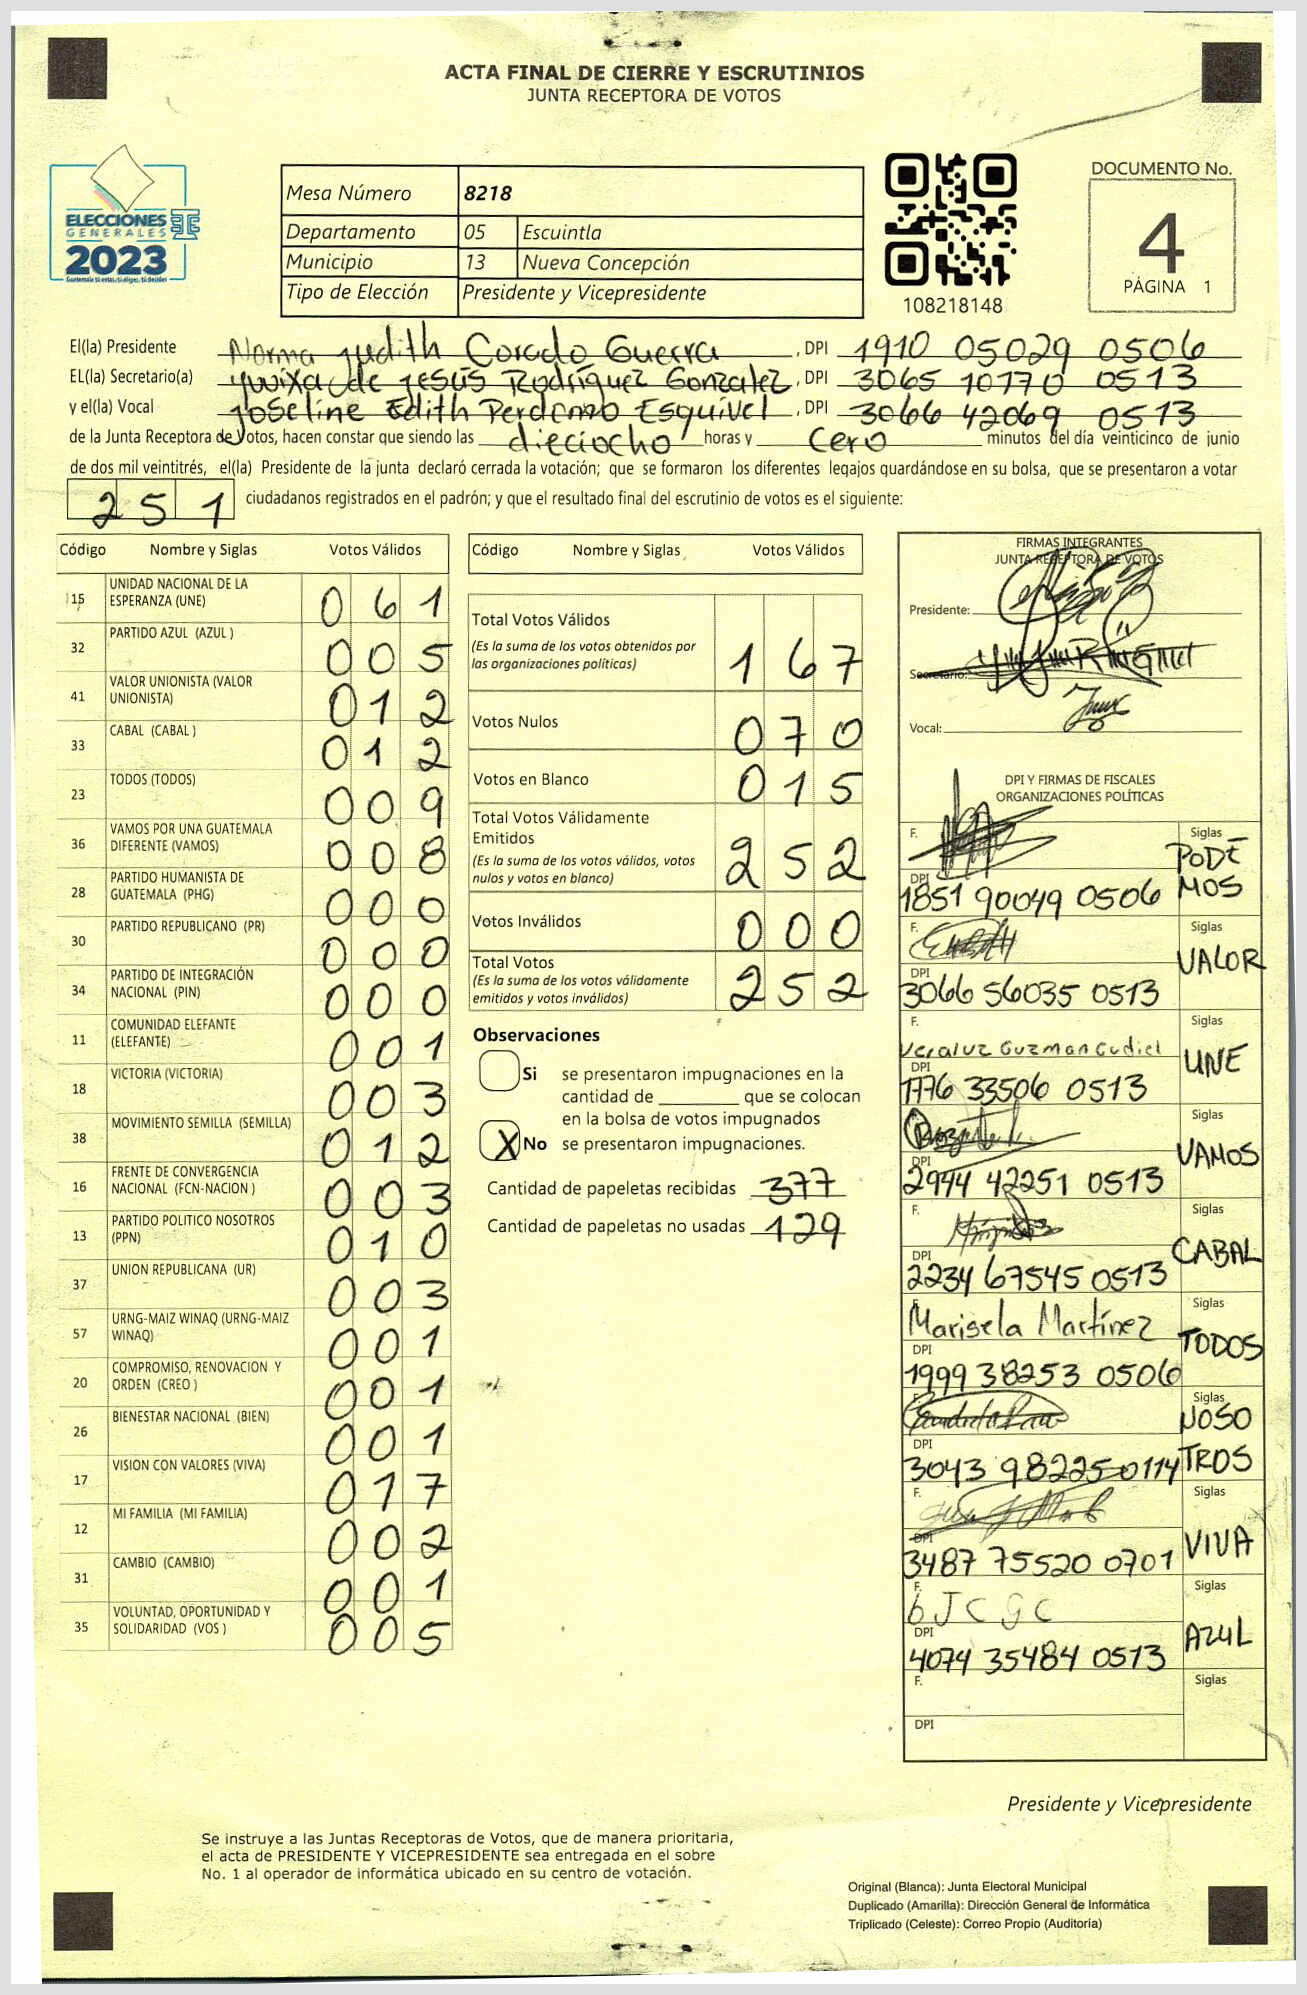 ACTA FINAL DE CIERRE Y ESCRUTINIOS
JUNTA RECEPTORA DE VOTOS
ELECCIONES
GENERALES
2023
Mesa Número 8218
Departamento 05 Escuintla
Municipio 13 Nueva Concepción
Tipo de Elección Presidente y Vicepresidente
108218148
DOCUMENTO No.
4
PÁGINA 1
El(la) Presidente Norma Judith Corado Guerra, DPI 1910 05029 0506
EL(la) Secretario(a) de Jesús Rodríguez Gonzalez, DPI 3065 10770 0513
y el(la) Vocal Joseline Edith Perdomo Esquivel, DPI 3066 42069 0513
de la Junta Receptora de Votos, hacen constar que siendo las dieciocho horas y cero minutos del día veinticinco de junio
de dos mil veintitrés, el(la) Presidente de la junta declaró cerrada la votación; que se formaron los diferentes legajos guardándose en su bolsa, que se presentaron a votar
251 ciudadanos registrados en el padrón; y que el resultado final del escrutinio de votos es el siguiente:
Código Nombre y Siglas Votos Válidos
15 UNIDAD NACIONAL DE LA ESPERANZA (UNE) 061
32 PARTIDO AZUL (AZUL ) 005
41 VALOR UNIONISTA (VALOR UNIONISTA) 012
33 CABAL (CABAL ) 012
23 TODOS (TODOS) 009
36 VAMOS POR UNA GUATEMALA DIFERENTE (VAMOS) 008
28 PARTIDO HUMANISTA DE GUATEMALA (PHG) 000
30 PARTIDO REPUBLICANO (PR) 000
34 PARTIDO DE INTEGRACIÓN NACIONAL (PIN) 000
11 COMUNIDAD ELEFANTE (ELEFANTE) 001
18 VICTORIA (VICTORIA) 003
38 MOVIMIENTO SEMILLA (SEMILLA) 012
16 FRENTE DE CONVERGENCIA NACIONAL (FCN-NACION ) 003
13 PARTIDO POLITICO NOSOTROS (PPN) 010
37 UNION REPUBLICANA (UR) 003
57 URNG-MAIZ WINAQ (URNG-MAIZ WINAQ) 001
20 COMPROMISO, RENOVACION Y ORDEN (CREO ) 001
26 BIENESTAR NACIONAL (BIEN) 001
17 VISION CON VALORES (VIVA) 017
12 MI FAMILIA (MI FAMILIA) 002
31 CAMBIO (CAMBIO) 001
35 VOLUNTAD, OPORTUNIDAD Y SOLIDARIDAD (VOS ) 005
Código Nombre y Siglas Votos Válidos
Total Votos Válidos 167
(Es la suma de los votos obtenidos por
las organizaciones políticas)
Votos Nulos 070
Votos en Blanco 015
Total Votos Válidamente
Emitidos 252
(Es la suma de los votos válidos, votos
nulos y votos en blanco)
Votos Inválidos 000
Total Votos 252
(Es la suma de los votos válidamente
emitidos y votos inválidos)
Observaciones
Si se presentaron impugnaciones en la
cantidad de ________ que se colocan
en la bolsa de votos impugnados
X No se presentaron impugnaciones.
Cantidad de papeletas recibidas 377
Cantidad de papeletas no usadas 129
FIRMAS INTEGRANTES
JUNTA RECEPTORA DE VOTOS
Presidente:
Secretario:
Vocal:
DPI Y FIRMAS DE FISCALES
ORGANIZACIONES POLÍTICAS
F. Siglas PODEMOS
DPI 1851 90049 0506
F. Siglas VALOR
DPI 3066 56035 0513
F. Veraluz Guzman Gudiel Siglas UNE
DPI 1776 33506 0513
Siglas VAMOS
DPI 2944 42251 0513
F. Siglas CABAL
DPI 2234 67545 0513
F. Marisela Martínez Siglas TODOS
DPI 1999 38253 0506
Siglas NOSOTROS
DPI 3043 98225 0114
F. Siglas VIVA
DPI 3487 75520 0701
F. bJCGC Siglas AZUL
DPI 4074 35484 0513
F. Siglas
DPI
Presidente y Vicepresidente
Se instruye a las Juntas Receptoras de Votos, que de manera prioritaria,
el acta de PRESIDENTE Y VICEPRESIDENTE sea entregada en el sobre
No. 1 al operador de informática ubicado en su centro de votación.
Original (Blanca): Junta Electoral Municipal
Duplicado (Amarilla): Dirección General de Informática
Triplicado (Celeste): Correo Propio (Auditoría)